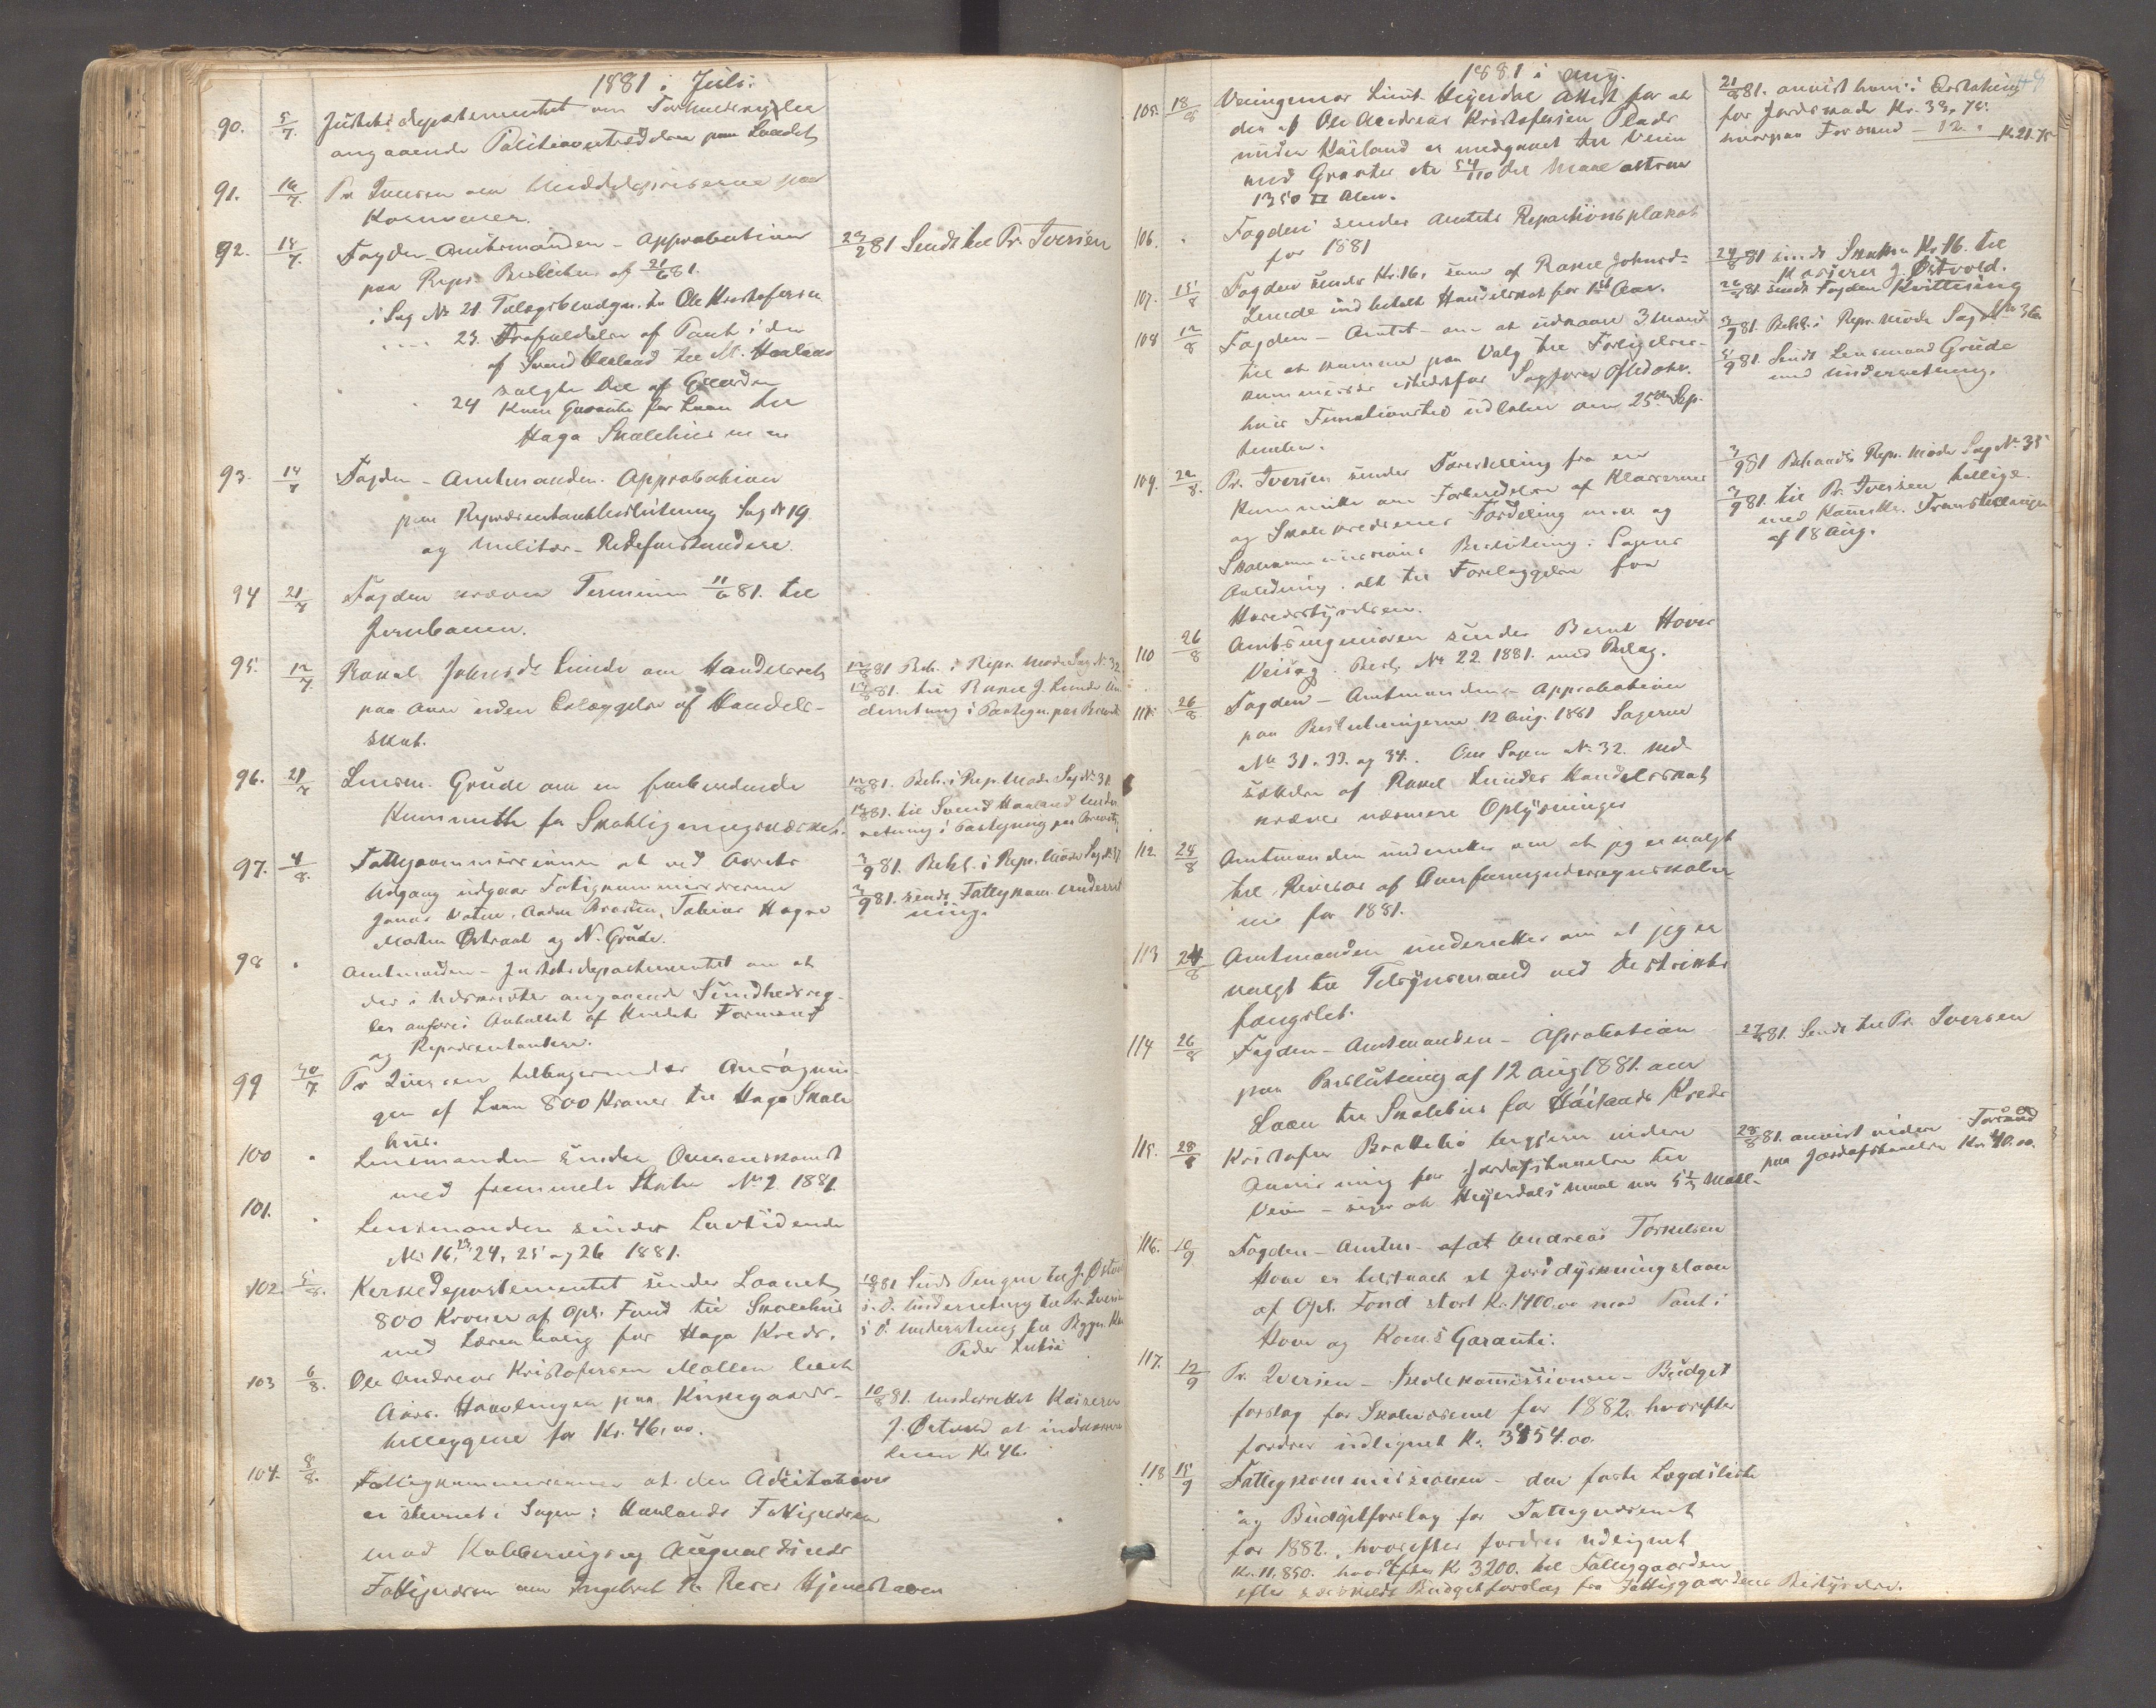 1881 i Juli.
90. 5/7. Justitsdepartementet om
angaaende paa Landet
91. 16/7. Pr Iversen om
92. 14/7. Fogden - Amtmanden - Approbation
paa Repr. Beslutn. af 21/6 81.
i Sag No 21 til Ole Kristofersen
23. Frafaldelse af Pant i den
af Svend Haaland til M. Haaland
solgte Del af Gaarden
24 Kom Garanti for Laan til
Haga Skolehus m m
23/7 81 Sendt til Pr. Iversen
93. 14/7 Fogden - Amtmanden. Approbation
paa Repræsentantbeslutning Sag No 19
og Militær-
94 21/7 Fogden kræver Terminen 11/6 81. til
Jernbanen.
95. 12/7. Rakel Johnsdr Lunde om Handelsret
paa Aare uden Erlæggelse af Handels-
skat.
12/8 81 Beh. i Repr. Møde Sag No 32
13/8 81. til Rakel J. Lunde Un-
derretning i Paategn. paa Brevet
96. 21/7 Lensm. Grude om en forberedende
Kommitte for
12/8 81. Beh. i Rep. Møde Sag No 31
13/8 81. til Svend Haaland Under-
retning i Paategning paa Brevet
97. 4/8. Fattigkommissionen at ved Aarets
Udgang udgaar Fattigkommissærerne
Jonas Vatne, Tobias Hogne
Morten Østraat og N. Grude.
3/9 81. Behl. i Repr. Møde Sag No 37
3/9 81. sendt Fattigkom. Underret-
ning.
98 " Amtmanden - Justitsdepartementet om at
der i Udskrifter angaaende Sundhedsreg-
ler anføres Antallet af Herredets Formænd
og Repræsentanter.
99 30/7. Pr Iversen tilbagesender Ansøgnin-
gen af Laan 800 Kroner til Haga Skole
hus.
100 " Lensmanden sender
med fremmede Skatter No 2 1881.
101. " Lensmanden sender Lovtidende
No 16, 23, 24, 25 og 26 1881.
102. 5/8. Kirkedepartementet sender Laanet
800 Kroner af Opl. Fond til Skolehus
med Lærerbolig for Haga Kreds.
10/8 81 Sendt Pengene til J. Østvold
s. D. Underretning til Pr. Iversen
s D. Underretning til
Peder
103 6/8. Ole Andreas Kristofersen Mollen
paa Kirkegaards-
tillæggene for Kr. 46,00.
10/8 81. underrettet Kasserer
J. Østvold at
Kr 46.
104. 8/8. Fattigkommissionen at den
er stevnet i Sagen: Haalands Fattigvæsen
mod og Augvaldsnes
Fattigvæsen om
1881 i Aug.
105. 18/8 Veiingeniør Lieut. Heyerdal Attest for at
der af Ole Andreas Kristofersen Plads
under Haaland er medgaaet til Veien
med Grøfter etc 54/110 del Maal
1350 □ Alen.
21/8 81. anvist ham i Erstatning
for Jordskade Kr. 33,75.
hvorpaa Forskud — 12. " Kr. 21.75
106. " Fogden sender Amtets Repartitionsplakat
for 1881
107. 15/8 Fogden sender Kr. 16, som af Rakel Johnsd-
Lunde indbetalt Handelsskat for 1ste Aar.
24/8 81 sendt Kr 16 til
Kasserer J. Østvold.
sendt Fogden Kvittering
108 12/8 Fogden - Amtet - om at udnævne 3 Mænd
til at komme paa Valg til Forligelses-
kommissær istedetfor
hvis Funktionstid udløber om 25de Sep-
tember.
3/9 81. Behl. i Repr. Møde Sag No 36.
5/9 81. Sendt Lensmand Grude
med Underretning.
109. 22/8. Pr. Iversen sender Forestilling fra en
Kommitte om Forbedelse af Klasserne
og Skolekredsenes Fordeling m. m og
Skolekommissionens Beslutning i Sagens
Anledning, alt til Forelæggelse for
Herredsstyrelsen.
3/9 81 Behandl. Repr. Møde Sag No 35
3/9 81. til Pr. Iversen tillige
med
af 18 Aug.
110 26/8 Amtsingeniøren sender Bernt Hover
Veisag. Besl. No 22 1881. med Bilag.
111. 26/8 Fogden - Amtmandens Approbation
paa Beslutningerne 12 Aug. 1881 Sagerne
No 31. 33. og 34. Om Sagen No. 32. ned-
sættelse af Rakel Lundes Handelsskat
kræves nærmere Oplysninger
112 24/8 Amtmanden underretter om at jeg er valgt
til Revisor af Overformynderregnskaber-
ne for 1881.
113 24/8 Amtmanden underretter om at jeg er
valgt til Tilsynsmand ved Distrikts
fængslet.
114 26/8 Fogden - Amtmanden - Approbation
paa Beslutning af 12 Aug 1881. om
Laan til Skolehus for Haalands Kreds
27/8 81. Sendt til Pr. Iversen
115. 28/8 Kristofer begjærer videre
Anvisning for Jordafstaaelse til
Veien - siger at Heyerdals Maal var Maal.
28/8 81. anvist videre Forskud
paa Jordafstaaelse Kr. 40.00.
116. 10/9 Fogden - Amtet - at Andreas Torkelsen
Hove er tilstaaet et Jorddyrkningslaan
af Opl. Fond stort Kr. 1400,00 mod Pant i
Hove og Kom.s Garanti.
117. 12/9 Pr. Iversen - Skolekommissionen - Budget
forslag for Skolevæsenet for 1882, hvorefter
fordres udlignet Kr. 3454.00.
118 15/9 Fattigkommissionen - den faste Lægdsliste
og Budgetforslag for Fattigvæsenet
for 1882, hvorefter fordres udlignet
Kr. 11,850. hvoraf Kr 3200. til Fattiggaarden
efter Budgetforslag fra Fattiggaardens Bestyrelse.